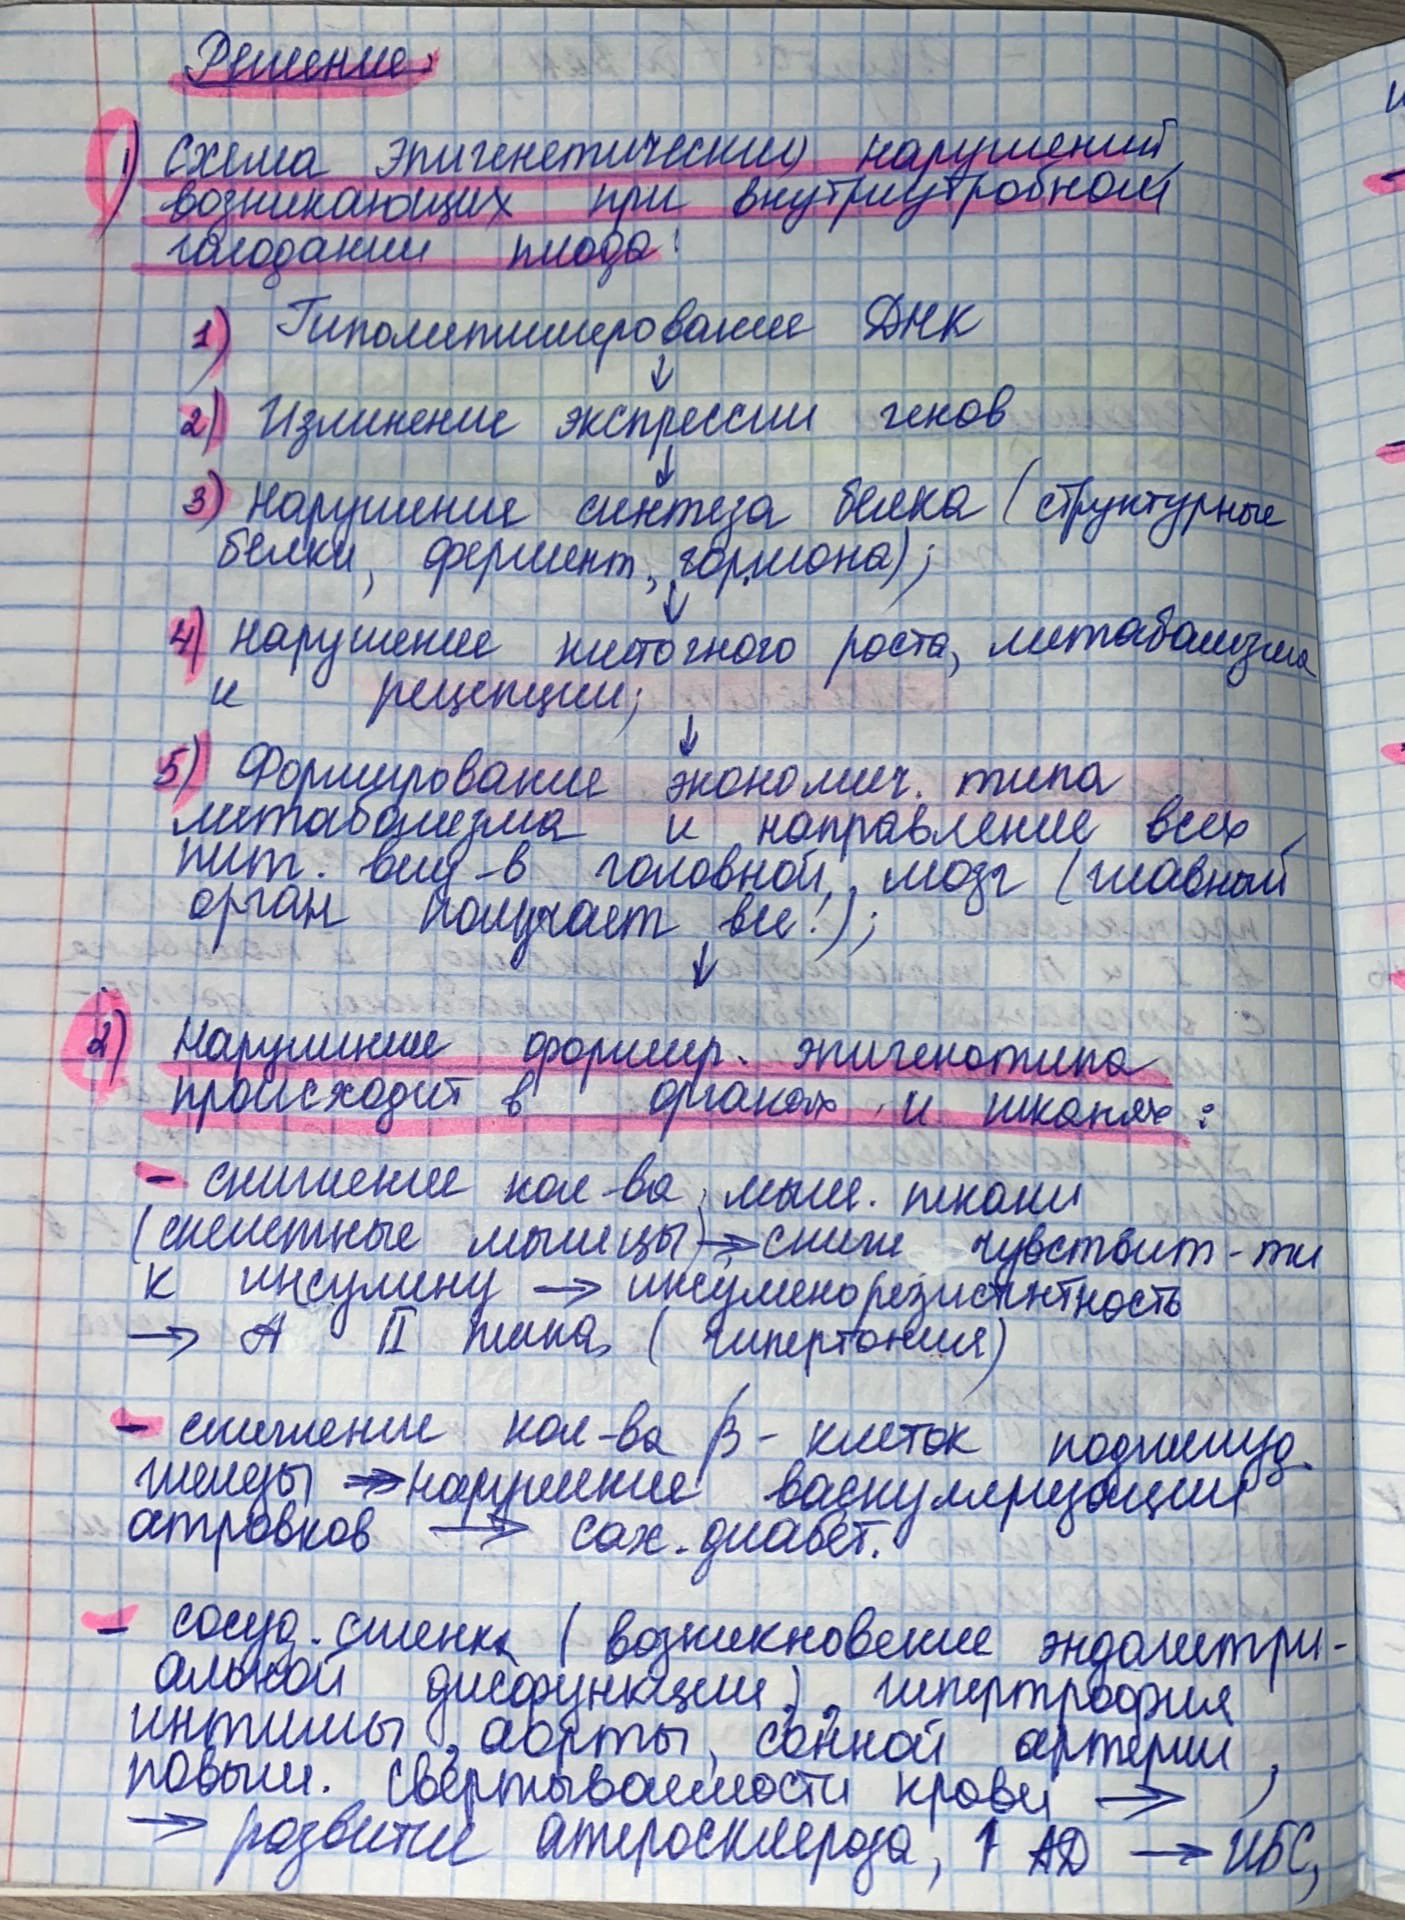 Решение:
1) Схема эпигенетических нарушений,
возникающих при внутриутробном
голодании плода:
1) Гипометилирование ДНК
↓
2) Изменение экспрессии генов
↓
3) Нарушение синтеза белка (структурные
белки, фермент, гормона);
↓
4) Нарушение клеточного роста, метаболизма
и рецепции;
↓
5) Формирование экономич. типа
метаболизма и направление всех
пит. вещ-в в головной мозг (главный
орган получает все!);
↓
2) Нарушение формир. эпигенотипа
происходит в органах и тканях:
- снижение кол-ва мыш. ткани
(скелетные мышцы) → сниж чувствит-ти
к инсулину → инсуленорезистнтность
→ II типа (гипертония)
- снижение кол-ва β-клеток поджелуд.
железы → нарушение васкуляризации
отровков → сах. диабет.
- сосуд. стенка (возникновение эндометри-
альной дисфункции), гипертрофия
интимы аорты, сонной артерии,
повыш. свертываемости крови →
→ развитие атеросклероза, ↑ АД → ИБС,